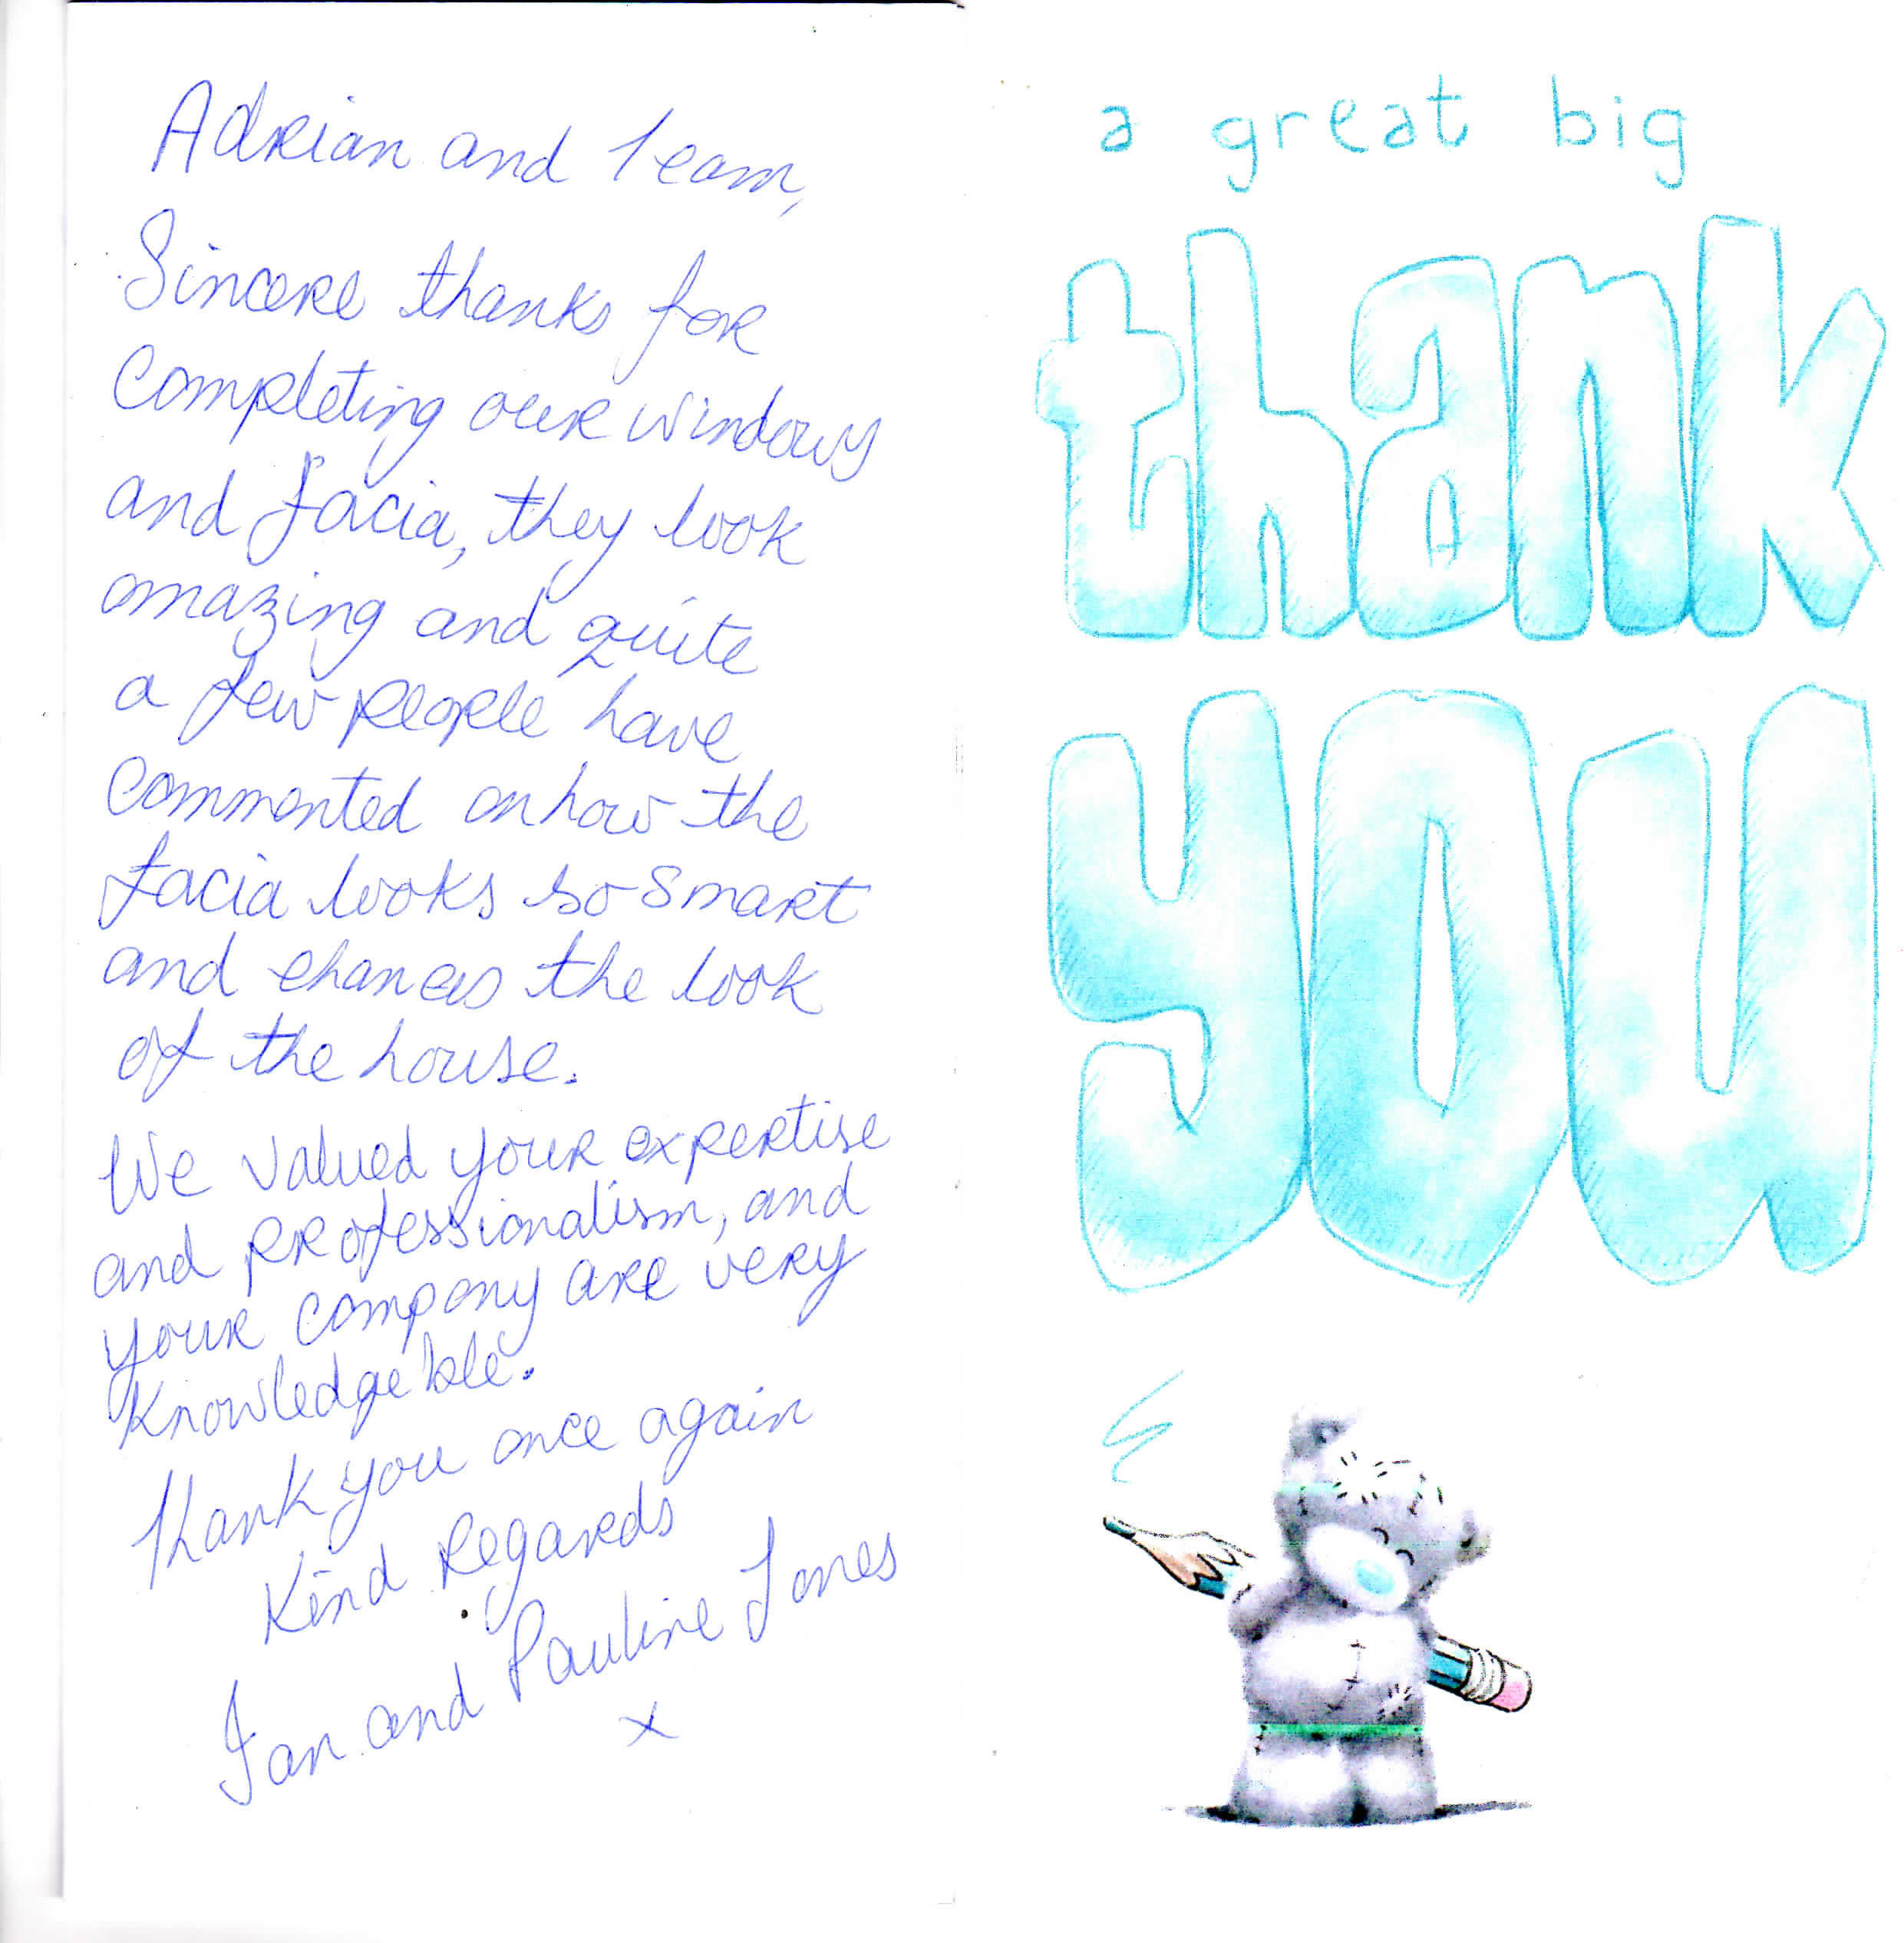 Adrian and Team,
Sincere thanks for
Completing our windows
and facia, they look
amazing and quite
a few people have
Commented on how the
facia looks so smart
and ehances the look
of the house.
We valued your expertise
and professionalism, and
your company are very
Knowledgeble.
Thank you once again
Kind Regards
Ian and Pauline Jones
x
a great big
thank
you